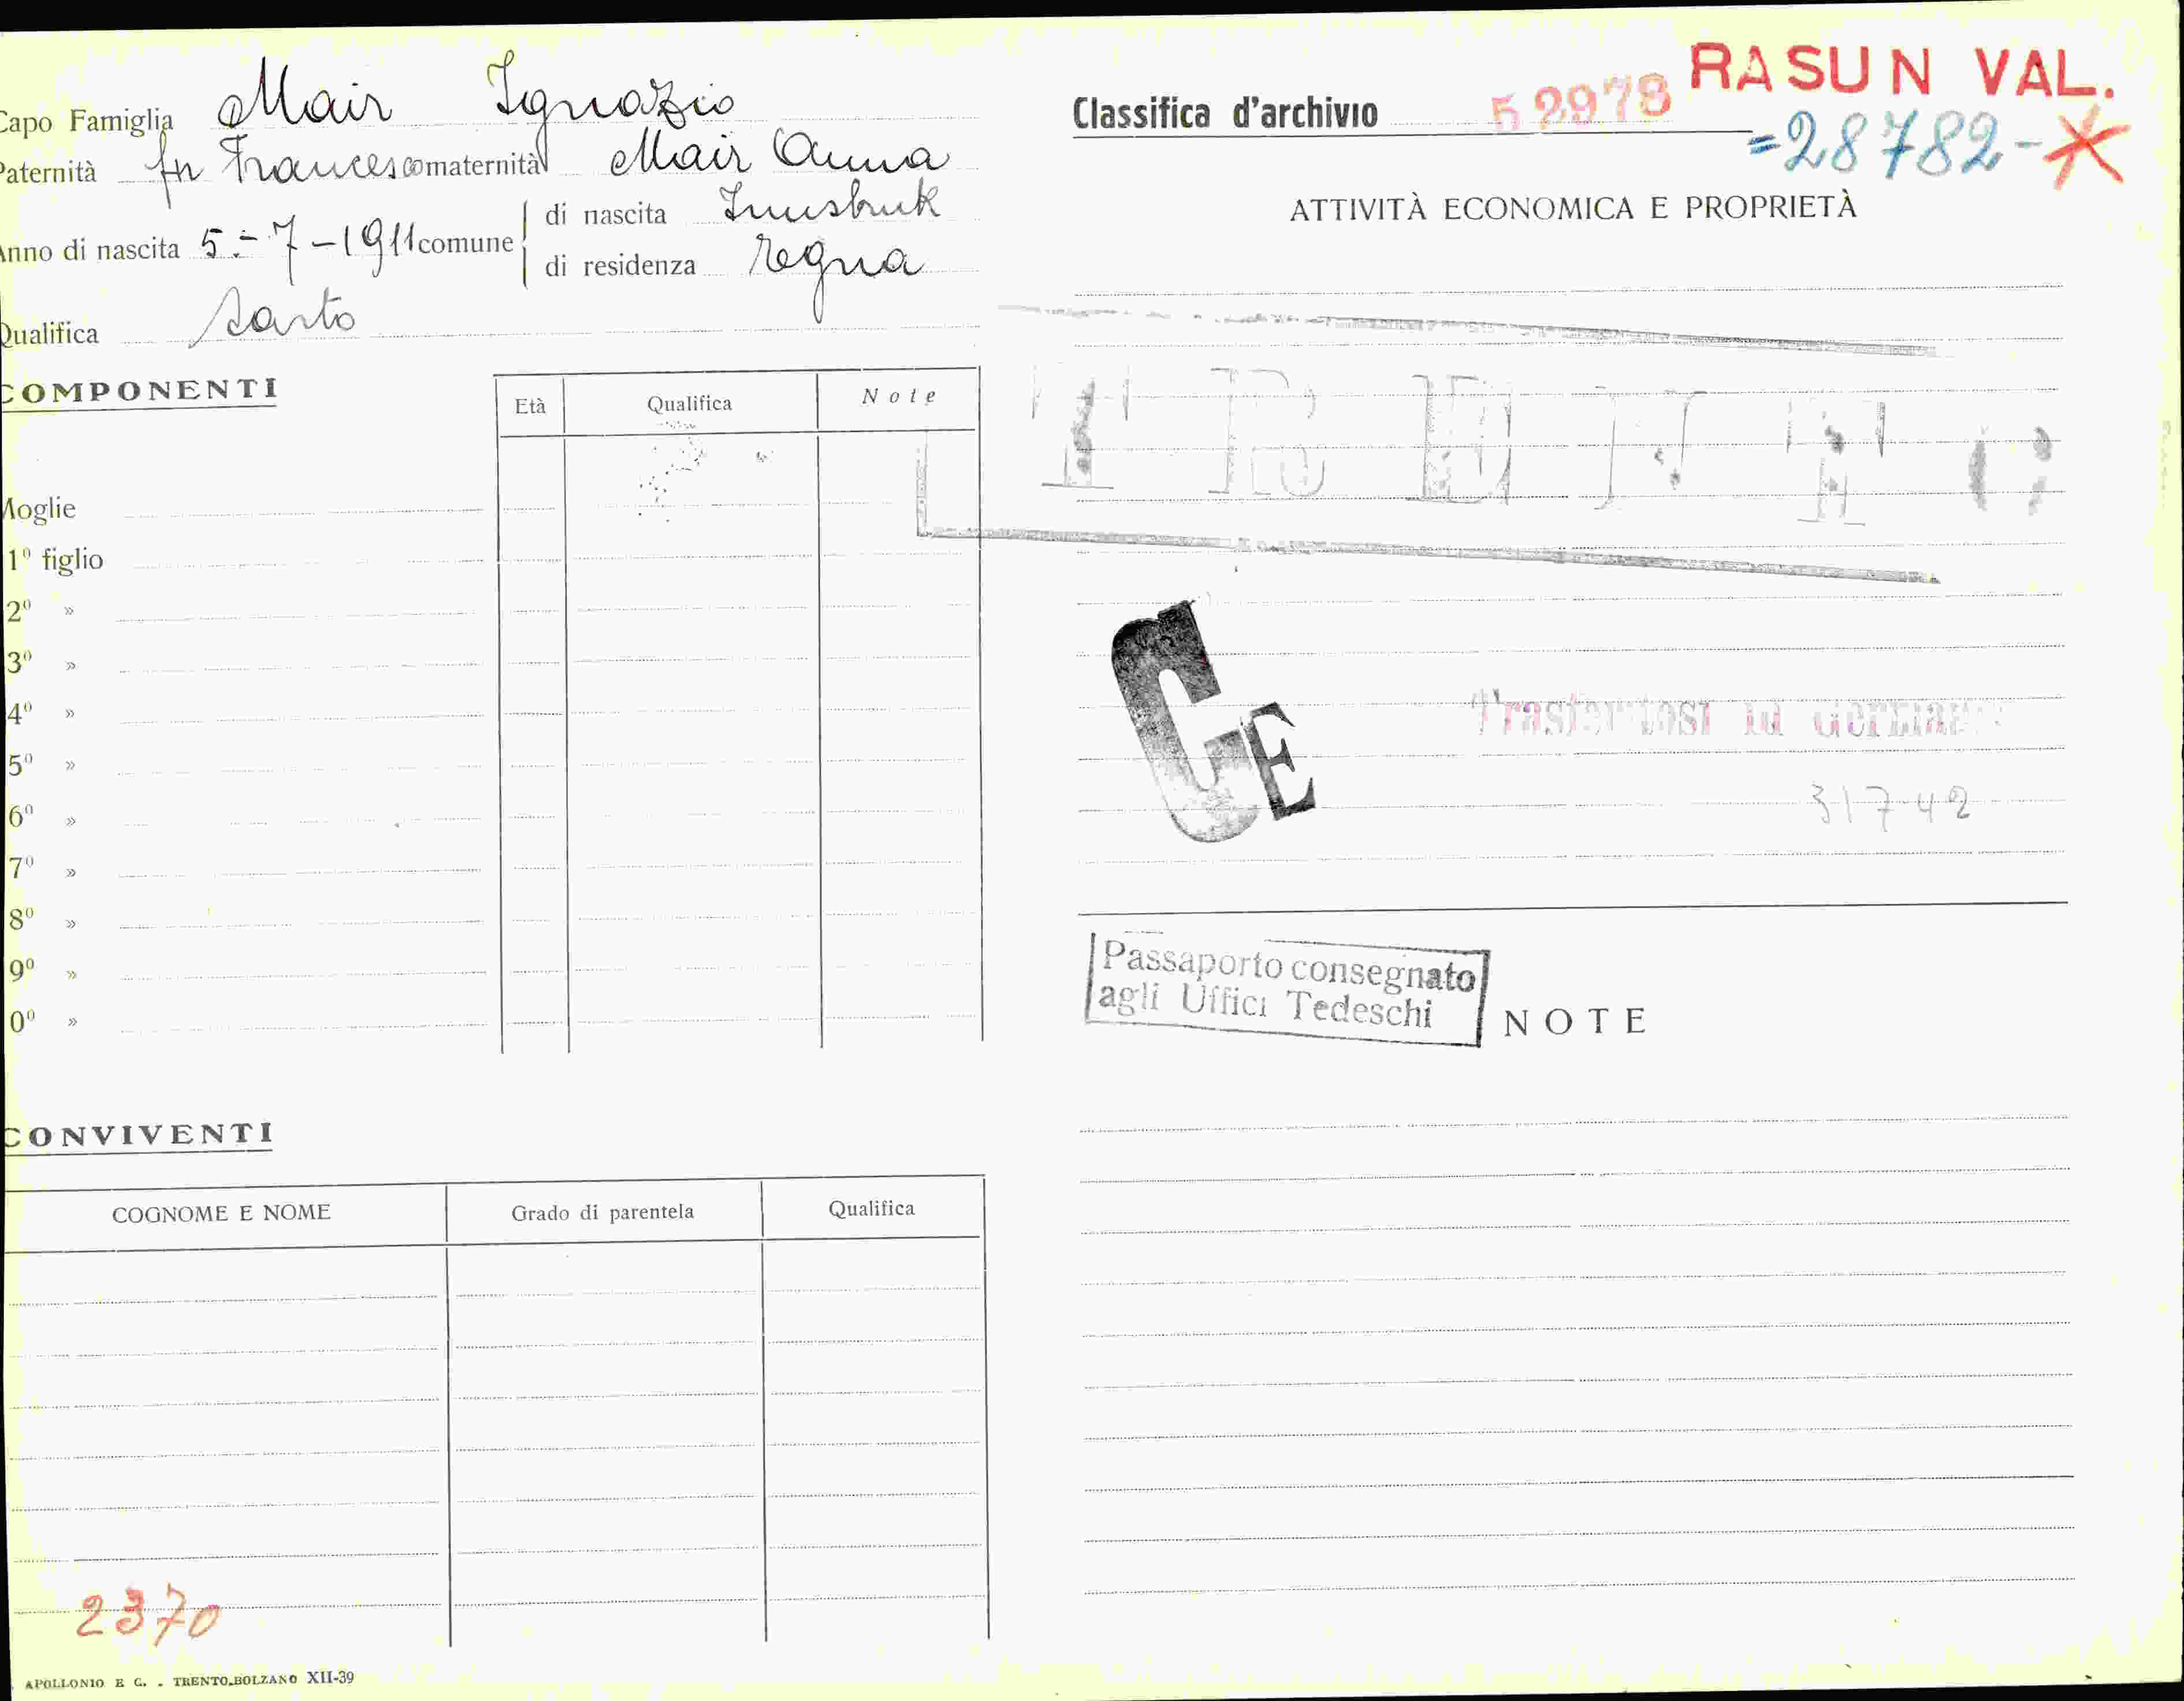 Capo Famiglia Mair Ignazio
Paternità fu Francesco maternità Mair Anna
Anno di nascita 5.-7-1911 comune
di nascita Innsbruk
di residenza Regna
Qualifica sarto
COMPONENTI
Età Qualifica Note
Moglie
1º figlio
2º »
3º »
4º »
5º »
6º »
7º »
8º »
9º »
0º »
CONVIVENTI
COGNOME E NOME Grado di parentela Qualifica
2370
APOLLONIO E C. - TRENTO-BOLZANO XII-39
RASUN VAL.
Classifica d'archivio 52978
=28782-
ATTIVITÀ ECONOMICA E PROPRIETÀ
CE
Trasferitosi in
317-42
Passaporto consegnato
agli Uffici Tedeschi
NOTE